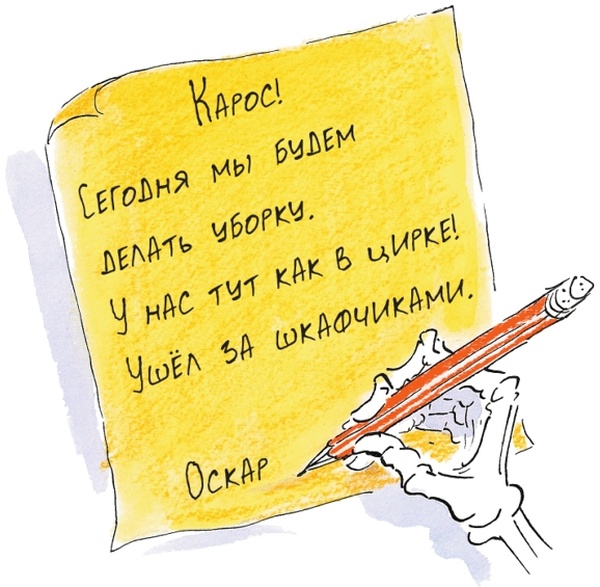 Карос!
Сегодня мы будем
делать уборку.
У нас тут как в цирке!
Ушёл за шкафчиками.
Оскар